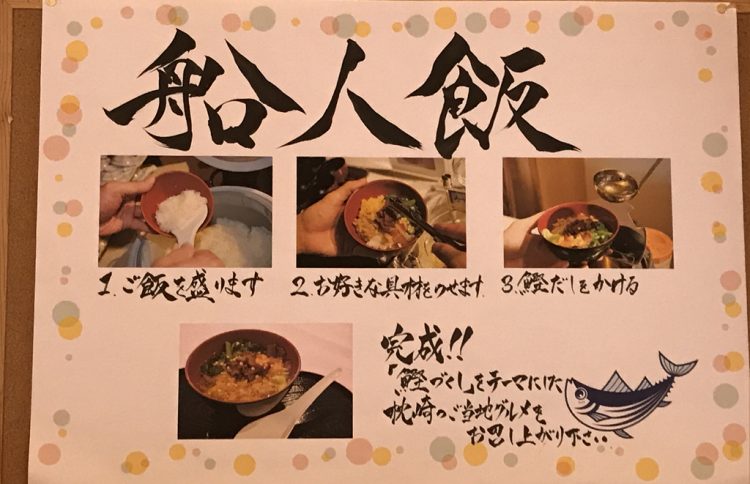 船人飯
1.ご飯を盛ります
2.お好きな具材をのせます.
3.鰹だしをかける
完成!!
「鰹づくし」をテーマにした
枕崎のご当地グルメを
お召し上がり下さい..